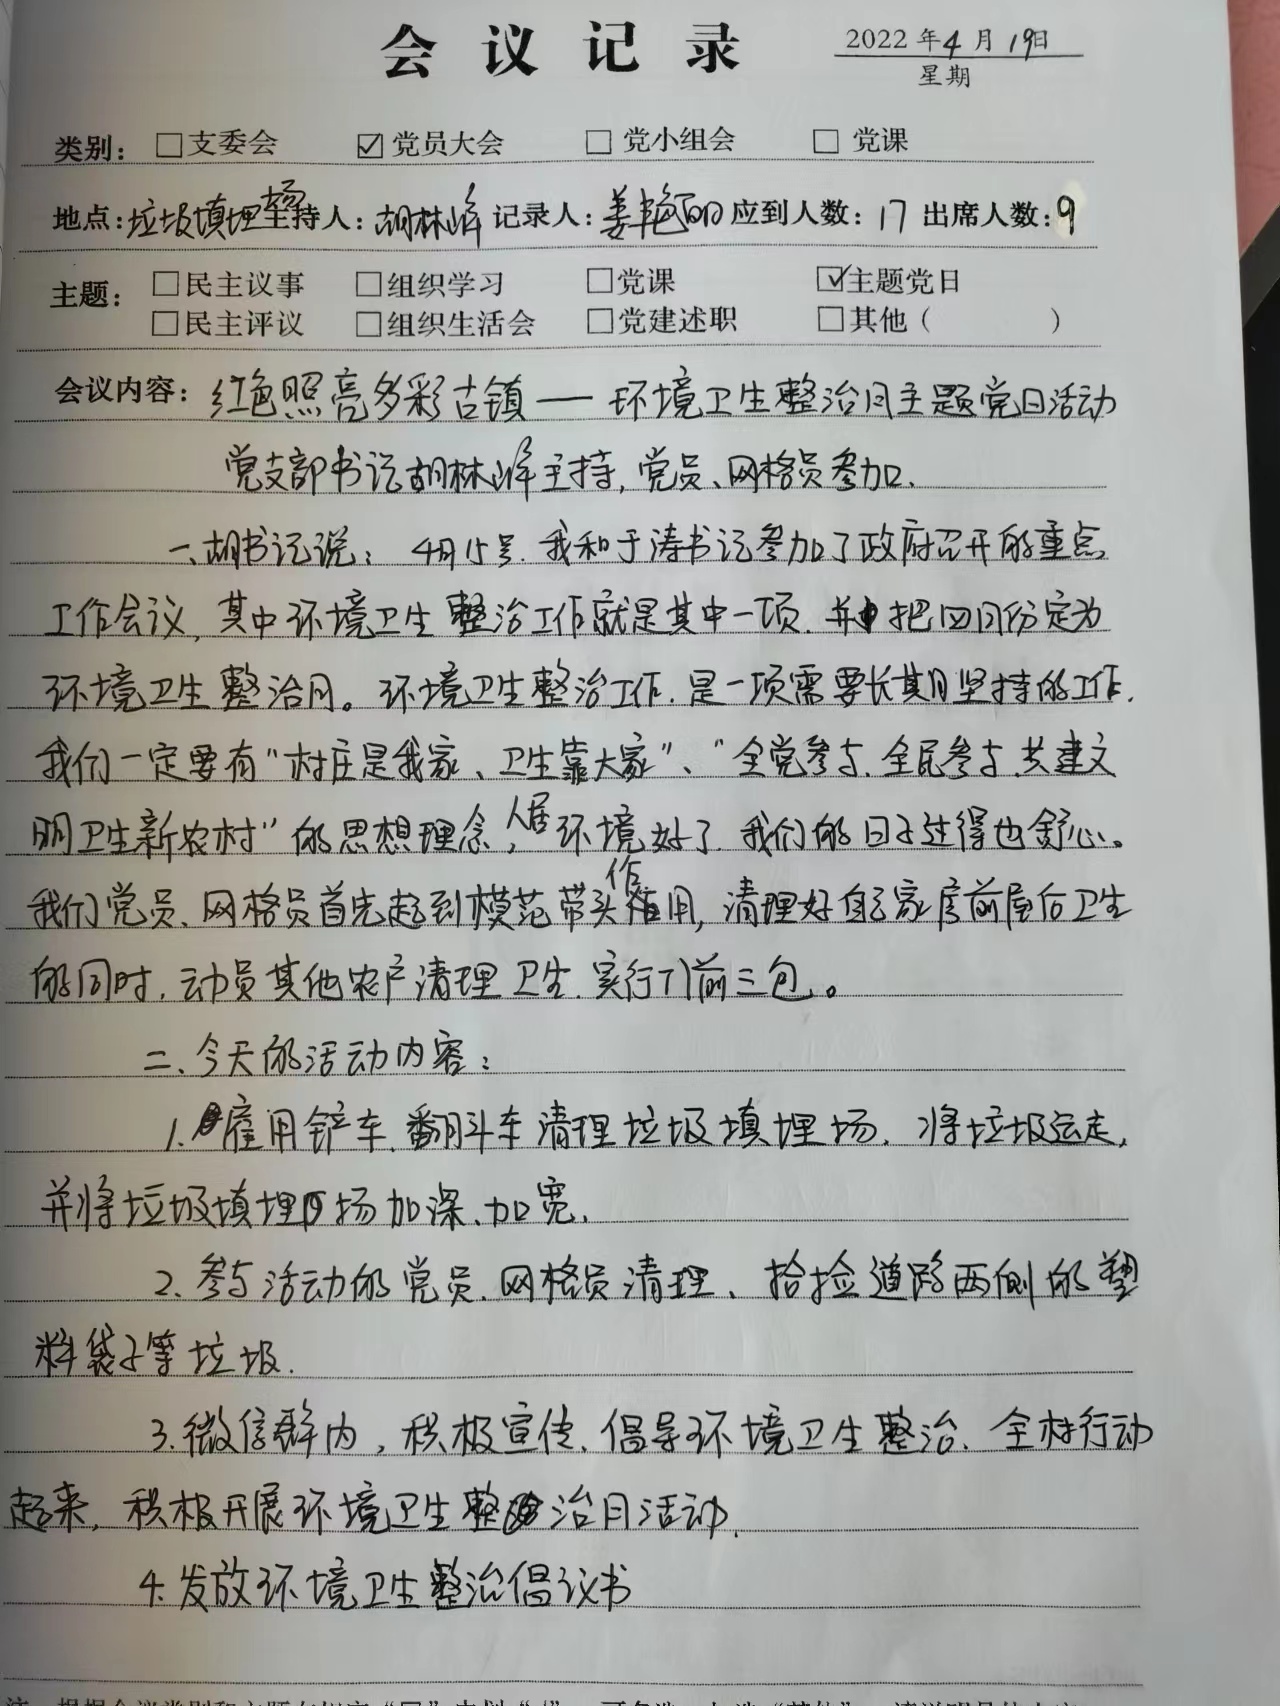 会议记录
2022年4月19日
星期
类别: □支委会 ☑党员大会 □党小组会 □党课
地点:垃圾填埋场 主持人:胡林峰 记录人:姜艳丽 应到人数:17 出席人数:9
主题: □民主议事 □组织学习 □党课 ☑主题党日
□民主评议 □组织生活会 □党建述职 □其他( )
会议内容: 红色照亮多彩古镇——环境卫生整治月主题党日活动
党支部书记胡林峰主持,党员、网格员参加.
一、胡书记说: 4月15号.我和于涛书记参加了政府召开的重点
工作会议,其中环境卫生整治工作就是其中一项.并把四月份定为
环境卫生整治月。环境卫生整治工作.是一项需要长期坚持的工作.
我们一定要有“村庄是我家、卫生靠大家”、“全党参与.全民参与.共建文
明卫生新农村”的思想理念,人居环境好了.我们的日子过得也舒心。
我们党员、网格员首先起到模范带头作用,清理好自己家房前屋后卫生
的同时.动员其他农户清理卫生.实行门前三包。
二、今天的活动内容:
1.雇用铲车、翻斗车清理垃圾填埋场.将垃圾运走,
并将垃圾填埋场加深、加宽.
2.参与活动的党员、网格员清理、拾捡道路两侧的塑
料袋子等垃圾.
3.微信群内,积极宣传、倡导环境卫生整治、全村行动
起来,积极开展环境卫生整治月活动.
4.发放环境卫生整治倡议书